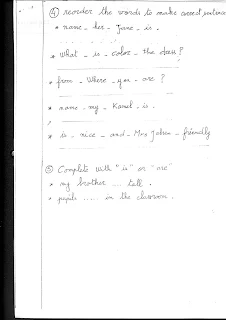 ④ reorder the words to make correct sentence
* name _ her _ Jane _ is .
* what _ is _ color _ the dress ?
* from _ Where _ you _ are ?
* name _ my _ Kamel _ is .
* is _ nice _ and _ Mrs _ friendly
⑤ Complete with "is" or "are"
* my brother ... tell .
* pupils ..... in the classroom .